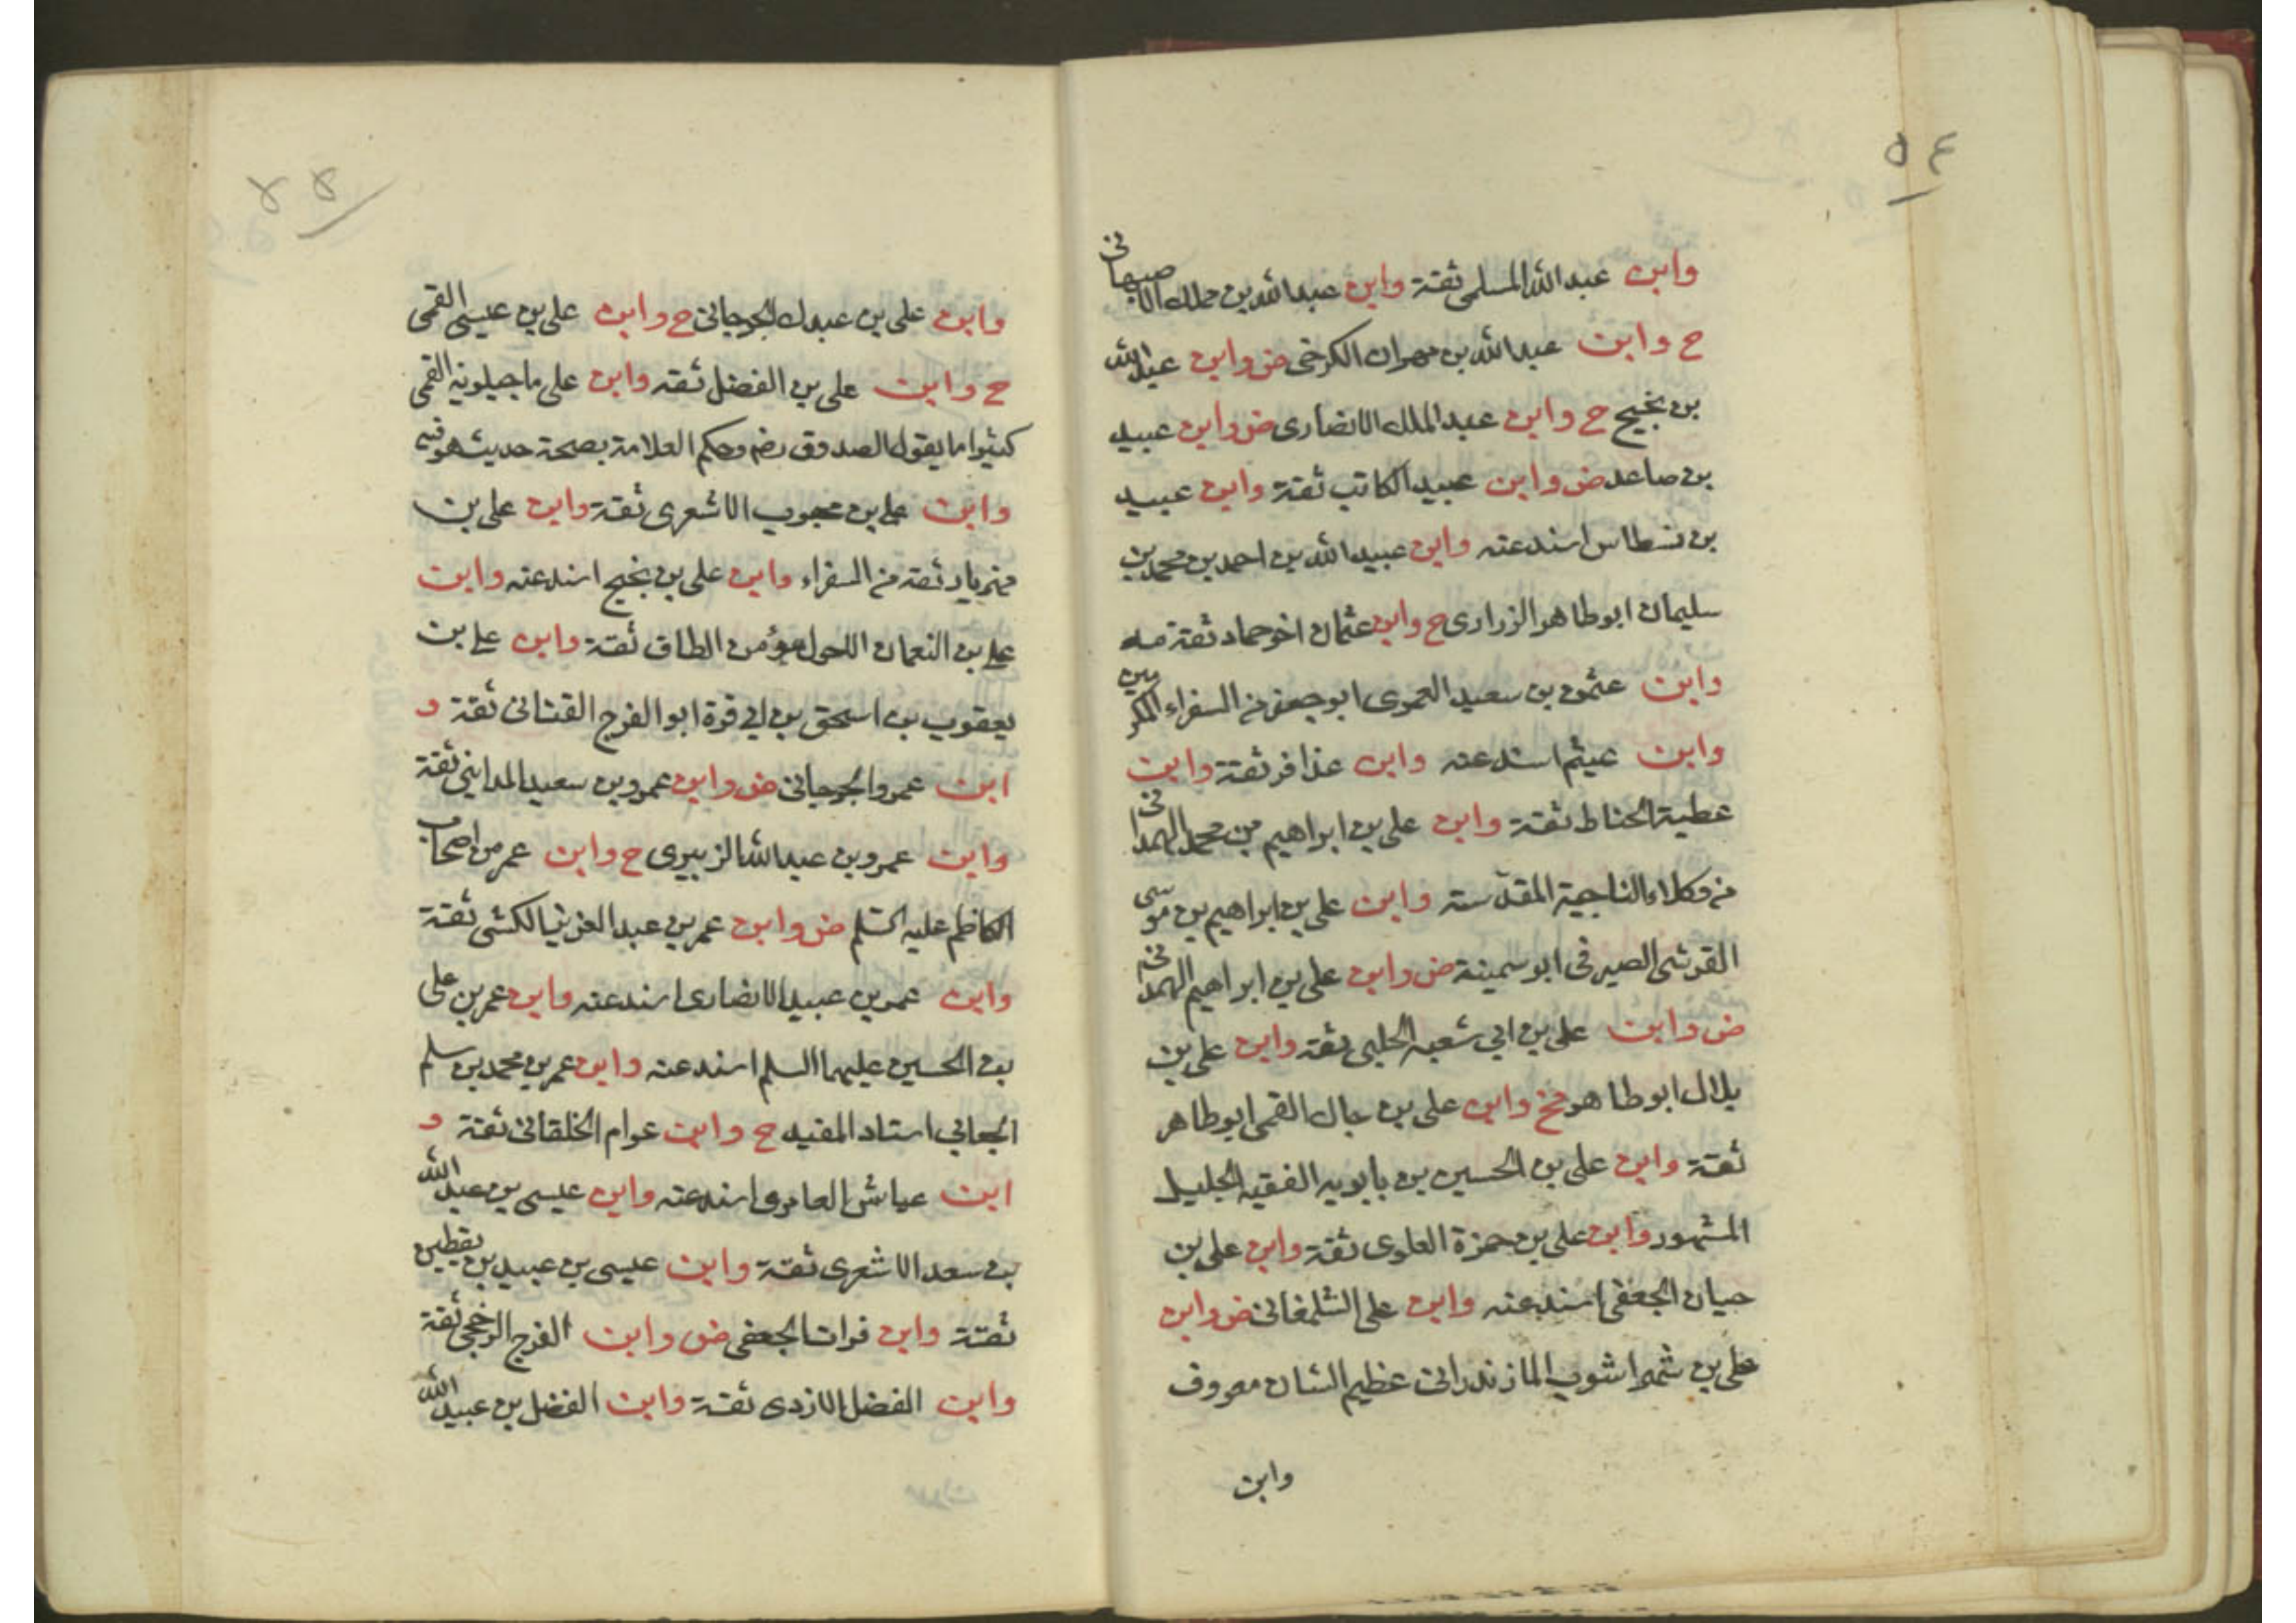 ٥٤
وابن عبد الله المسلمى ثقة وابن عبد الله بن مملك الاصبهانى
ح وابن عبد الله بن مهران الكرخى ض وابن عبد الله
بن نجيح ح وابن عبد الملك الانصارى ض وابن عبيد
بن صاعد ض وابن عبيد الكاتب ثقة وابن عبيد
بن نسطاس اسند عنه وابن عبيد الله بن احمد بن محمد بن
سليمان ابو طاهر الزرارى ح وابن عثمان اخو حماد ثقة
وابن عثمن بن سعيد العمرى ابو جعفر من السفراء المكرمين
وابن عيثم اسند عنه وابن عذافر ثقة وابن
عطية الحناط ثقة وابن على بن ابراهيم بن محمد الهمدانى
من وكلاء الناحية المقدسة وابن على بن ابراهيم بن موسى
القرشى الصيرفى ابو سمينة ض وابن على بن ابراهيم الهمدانى
ض وابن على بن ابى شعبه الحلبى ثقة وابن على بن
بلال ابو طاهر وابن على بن جاك القمى ابو طاهر
ثقة وابن على بن الحسين بن بابويه الفقيه الجليل
المشهور وابن على بن حمزة العلوى ثقة وابن على بن
حيان الجعفى اسند عنه وابن على الشلمغانى ض وابن
على بن شهراشوب المازندرانى عظيم الشان معروف
وابن
٥٥
وابن على بن عبدك الجرجانى ح وابن على بن عيسى القمى
ح وابن على بن الفضل ثقه وابن على ماجيلويه القمى
كثيرا ما يقول الصدوق رضم وحكم العلامة بصحة حديث هو فيه
وابن على بن محبوب الاشعرى ثقة وابن على بن
مهزيار ثقه من السفراء وابن على بن نجيح اسند عنه وابن
على بن النعمان الاحول مؤمن الطاق ثقة وابن على بن
يعقوب بن اسحق بن ابى قرة ابو الفرج القنانى ثقة و
ابن عمرو الجرجانى ض وابن عمرو بن سعيد المداينى ثقة
وابن عمرو بن عبد الله الزبيرى ح وابن عمر من اصحاب
الكاظم عليه السلم ض وابن عمر بن عبد العزيز الكشى ثقة
وابن عمر بن عبيد الانصارى اسند عنه وابن عمر بن على
بن الحسين عليهما السلم اسند عنه وابن عمر بن محمد بن سلم
الجعابي استاد المفيد ح وابن عوام الخلقانى ثقة و
ابن عياش العامرى اسند عنه وابن عيسى بن عبد الله
بن سعد الاشعرى ثقة وابن عيسى بن عبيد بن يقطين
ثقة وابن فرات الجعفى ض وابن الفرج الرخجى ثقة
وابن الفضل الازدى ثقة وابن الفضل بن عبيد الله